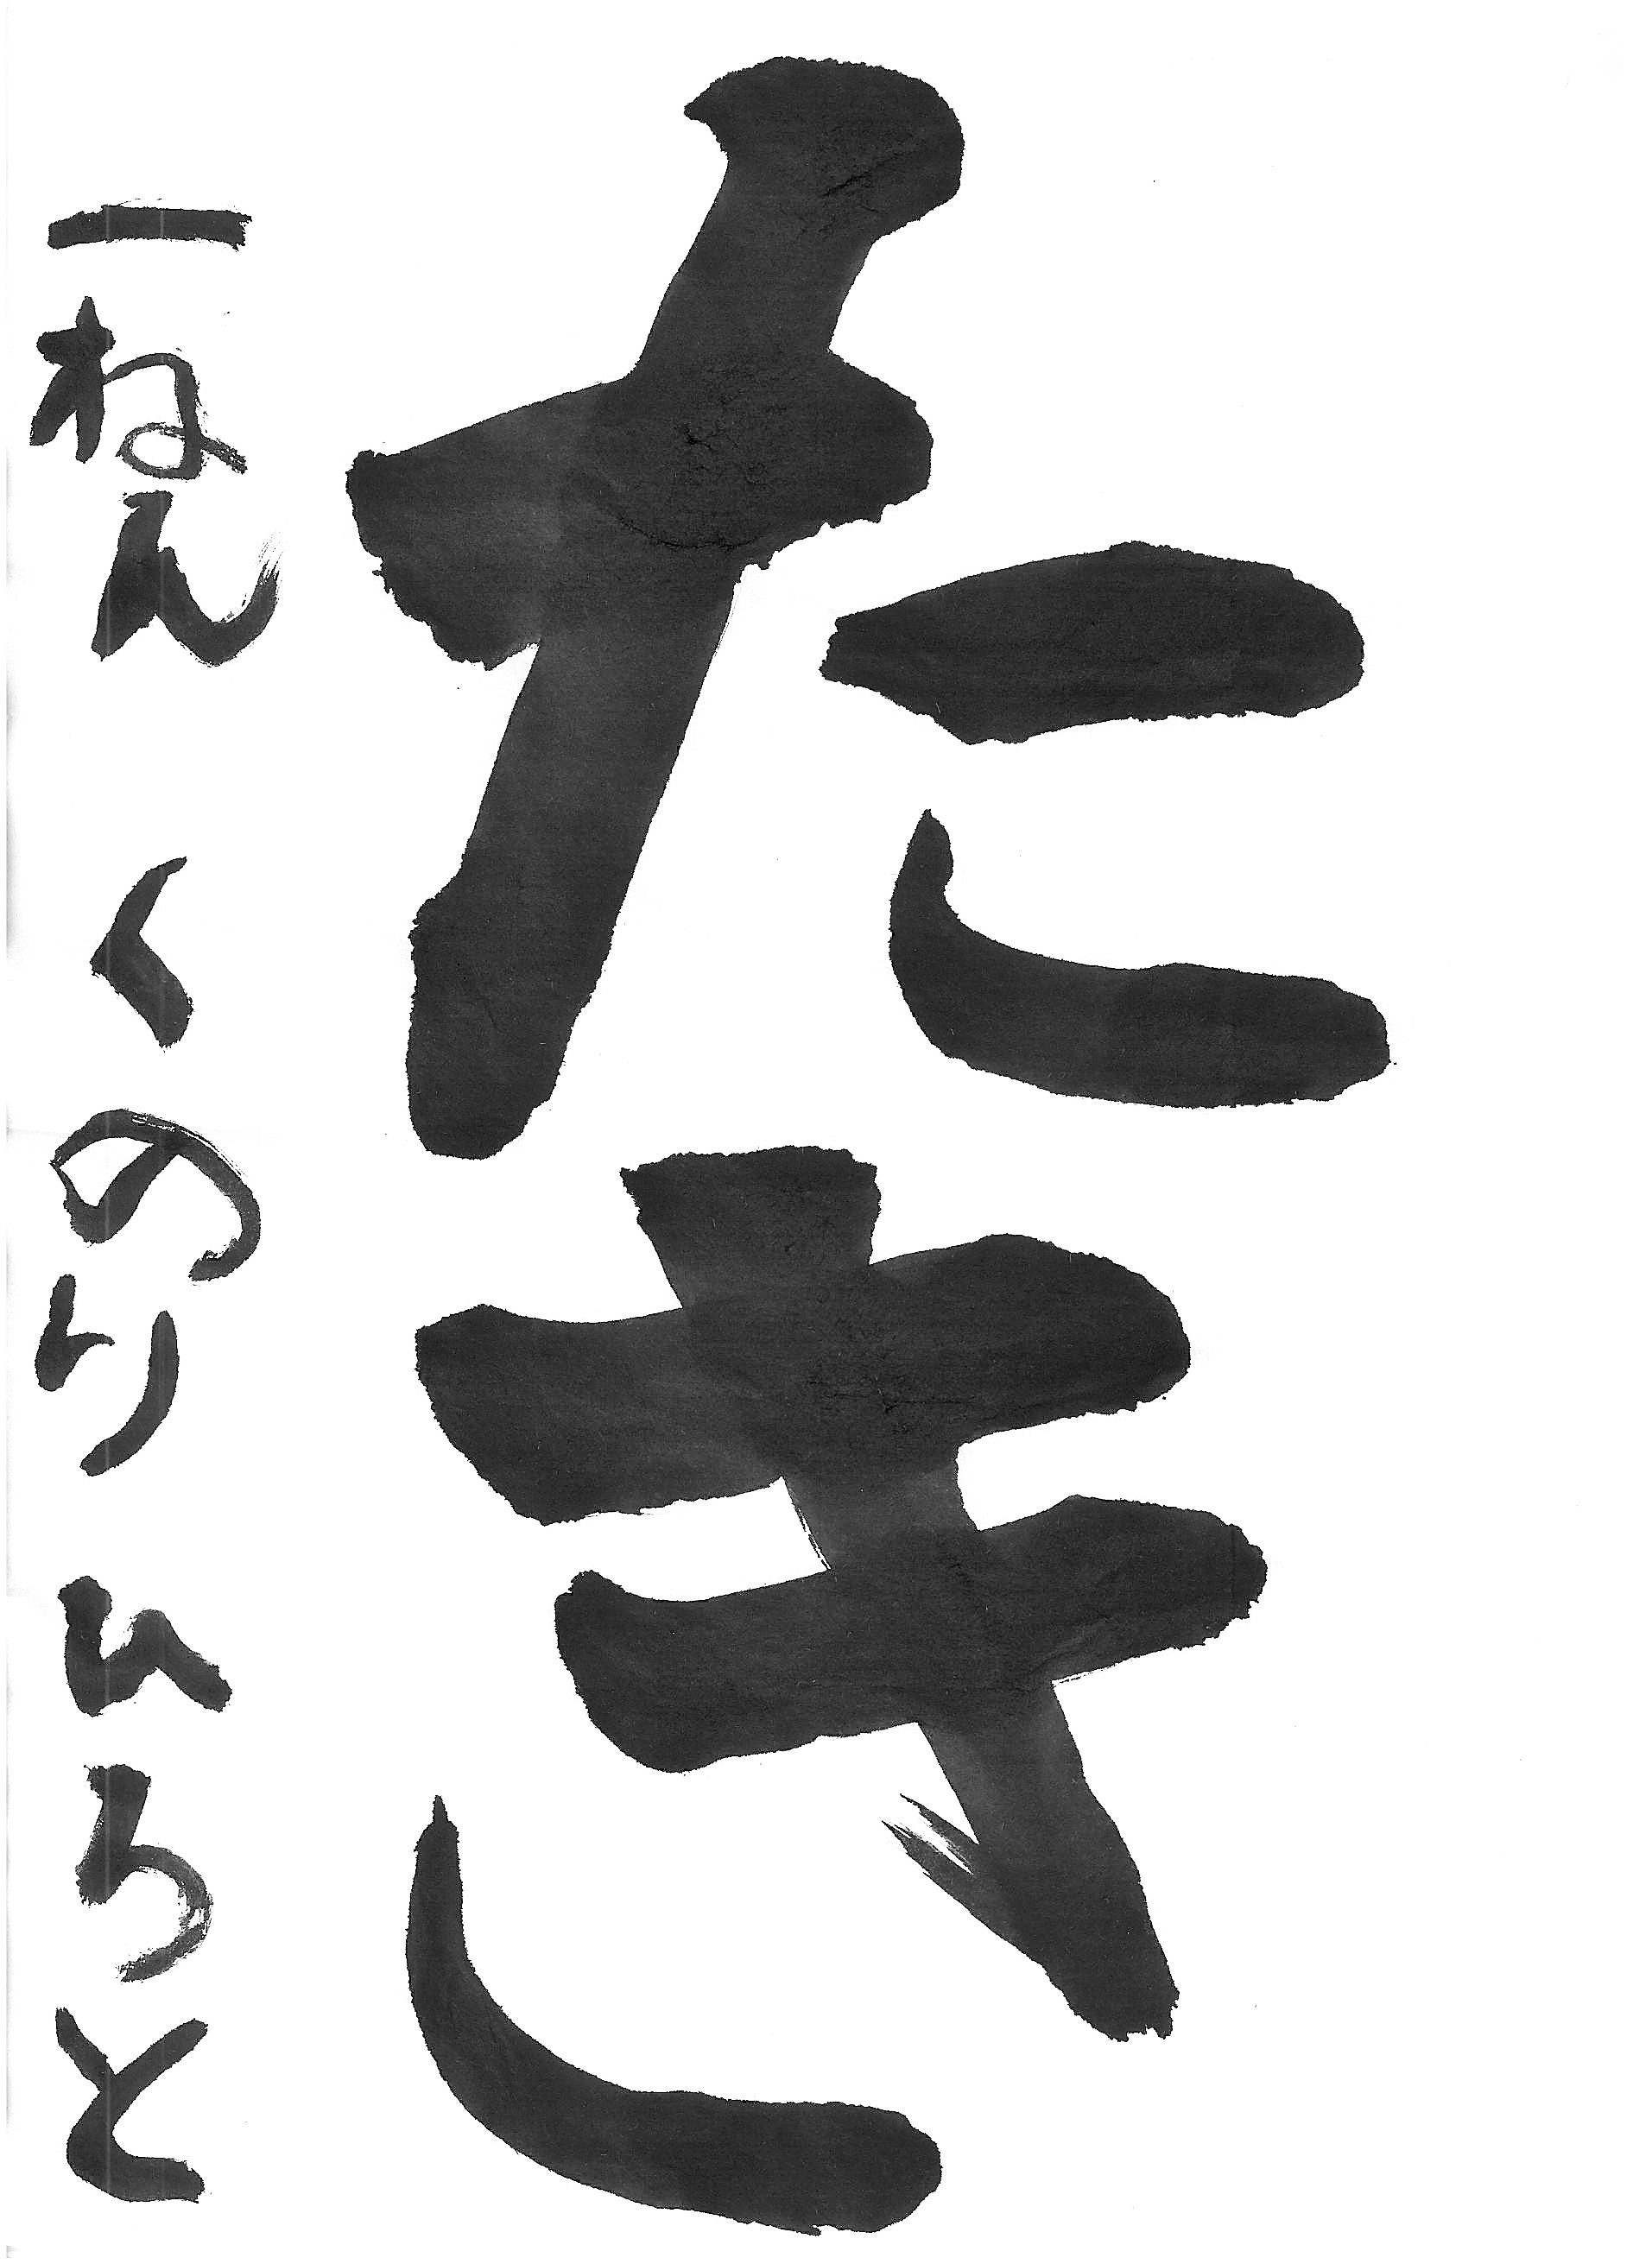 たき
一ねん くのり ひろと